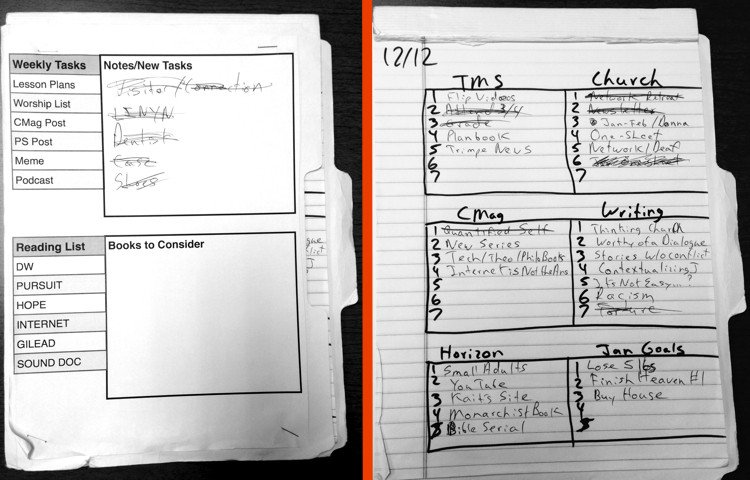 Weekly Tasks
Lesson Plans
Worship List
CMag Post
PS Post
Meme
Podcast
Notes/New Tasks
Visitor/Connection
Dentist
Reading List
DW
PURSUIT
HOPE
INTERNET
GILEAD
SOUND DOC
Books to Consider
12/12
TMS
1 Flip Videos
2 3/4
3 Grade
4 Planbook
5 Trimpe News
6
7
Church
1 Network Retreat
2 Newsletter
3 Jan-Feb/Donna
4 One-Sheet
5 Network/Deaf
6
7
CMag
1 Quantified Self
2 New Series
3 Tech/Theo/PhiloBook
4 Internet is Not the Ans
5
6
7
Writing
1 Thinking Church
2 Worthy of a Dialogue
3 Stories w/o conflict
4 Contextualizing J
5 It's Not Easy...?
6 Racism
7 Torture
Horizon
1 Small Adults
2 YouTube
3 Kait's Site
4 Monarchist Book
5 Bible Serial
Jan Goals
1 Lose 5 lbs
2 Finish Heaven #1
3 Buy House
4
5